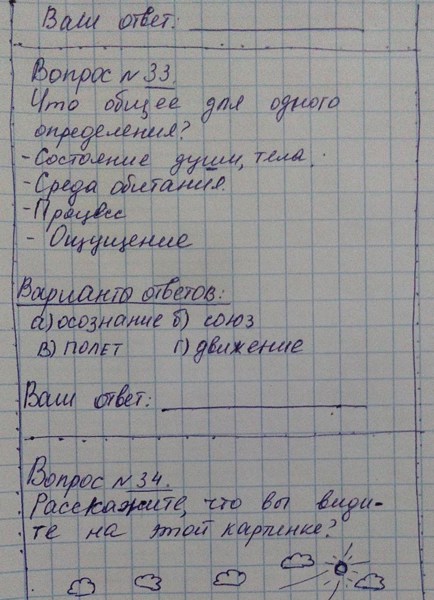 Ваш ответ:
Вопрос № 33.
Что общее для одного
определения?
- Состояние души, тела.
- Среда обитания.
- Процесс
- Ощущение
Варианты ответов:
а) осознание б) союз
в) полет г) движение
Ваш ответ:
Вопрос № 34.
Расскажите, что вы види-
те на этой картинке?